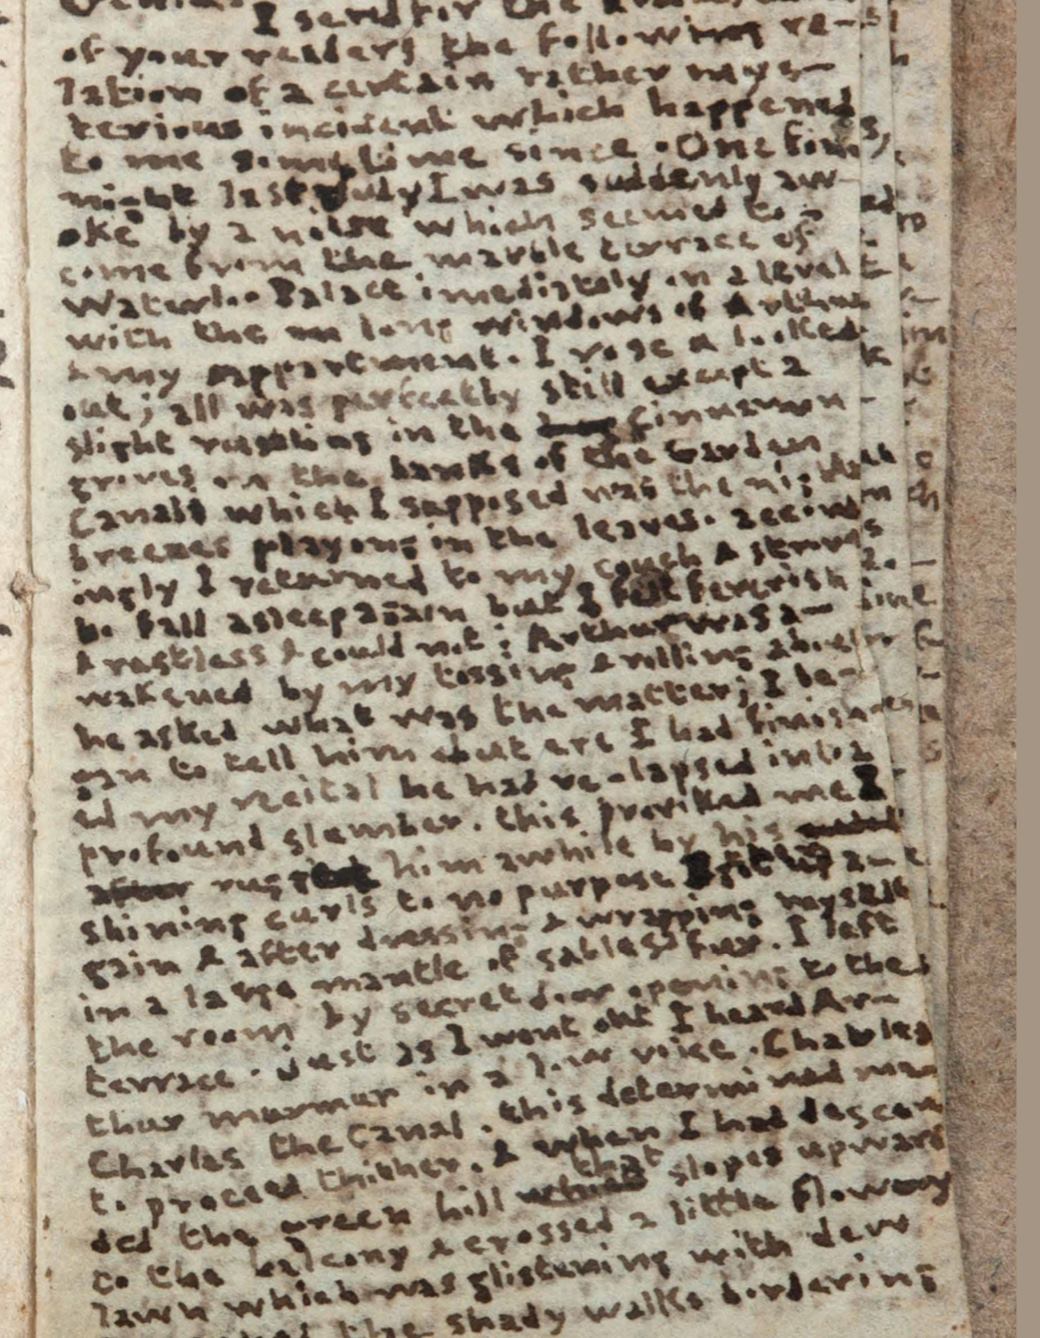 I send for the
of your readers the following re-
lation of a certain rather mys-
terious incident which happened
to me sometime since . One fine
night last July I was suddenly aw-
oke by a noise which seemed to
come from the marble terrace of
Waterloo Palace imediately on a level
with the long windows of Arthur
& my appartment . I rose & looked
out ; all was perfectly still except a
slight rustling in the Cinnamon
groves on the banks of the Garden
Canals which I supposed was the night
breezes playing in the leaves . accord
ingly I returned to my couch & strove
to fall asleep again but I felt feverish
& restless & could not ; Arthur was a-
wakened by my tossing & rolling about
he asked what was the matter ; I be-
gan to tell him but ere I had finish
ed my recital he had re-lapsed into a
profound slumber . this provoked me I
him awhile by his
shining curls to no purpose I got up a-
gain & after dressing & wrapping myself
in a large mantle of sables fur . I left
the room by secret door opening to the
terrace . Just as I went out I heard Ar-
thur murmur in a low voice . Charles
Charles the Canal . this determined me
to proceed thither . & when I had descen
ded the green hill that slopes upward
to the balcony & crossed a little flowery
lawn which was glistening with dew
the shady walks bordering